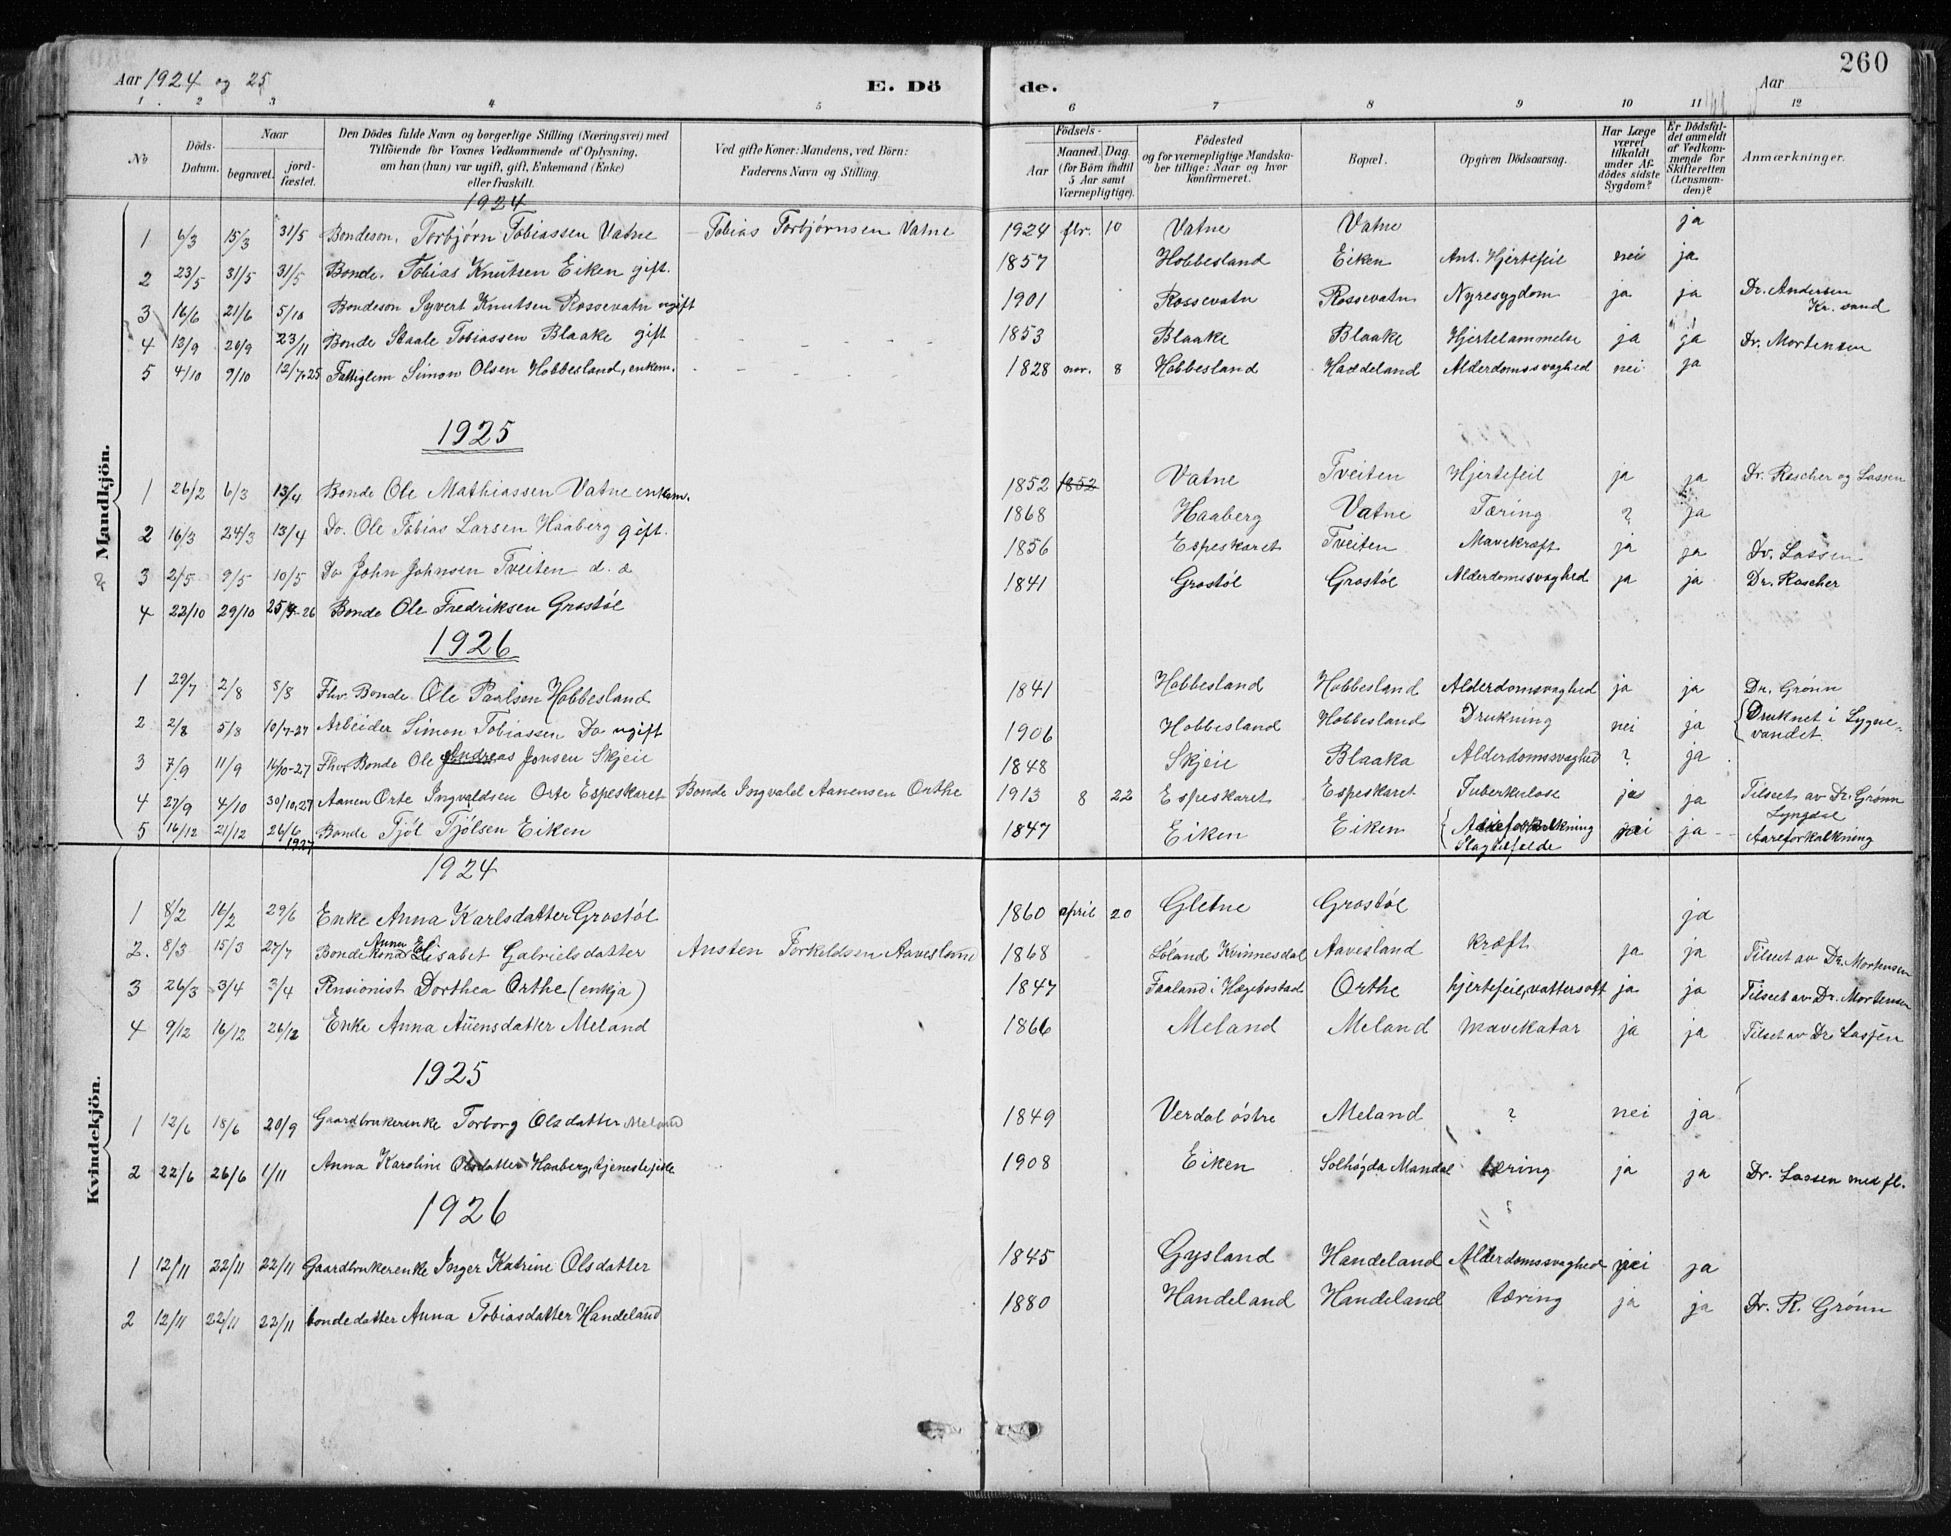 260
Aar 1924 og 25 E. Dö de. Aar
1. 2 3 4 5 6 7 8 9 10 11 12
No
Döds-Datum.
Naar
begravet.
jordfæstet.
Den Dödes fulde Navn og borgerlige Stilling (Næringsvei) med
Tilföiende for Voxnes Vedkommende af Oplysning,
om han (hun) var ugift, gift, Enkemand (Enke)
eller fraskilt.
Ved gifte Koner: Mandens, ved Börn:
Faderens Navn og Stilling.
Födsels-
Aar
Maaned. Dag.
(for Börn indtil
5 Aar samt
Værnepligtige).
Födested
og for værnepligtige Mandskaber tillige: Naar og hvor
konfirmeret.
Bopæl.
Opgiven Dödsaarsag.
Har Læge
været
tilkaldt
under Afdödes sidste
Sygdom?
Er Dödsfaldet anmeldt
af Vedkommende for
Skifteretten
(Lensmanden)?
Anmærkninger.
Mandkjön.
1924
1 6/3 15/3 31/5 Bondeson. Torbjørn Tobiassen Vatne Tobias Torbjørnsen Vatne 1924 fbr. 10 Vatne Vatne ja
2 23/5 31/5 31/5 Bonde. Tobias Knutsen Eiken gift. 1857 Hobbesland Eiken Ant. Hjertefeil nei ja
3 16/6 21/6 5/10 Bondeson Syvert Knutsen Rossevatn ugift 1901 Rossevatn Rossevatn Nyresygdom ja ja Dr. Andersen Kr. sand
4 13/9 20/9 23/11 Bonde Staale Tobiassen Blaake gift 1853 Blaake Blaake Hjertelammelse ja ja Dr. Mortensen
5 4/10 9/10 12/7.25 Fattiglem Simon Olsen Hobbesland, enkem. 1828 nov. 8 Hobbesland Haddeland Alderdomssvaghed nei ja
1925
1 26/2 6/3 13/4 Bonde Ole Mathiassen Vatne enkem. 1852 1852 Vatne Tveiten Hjertefeil ja ja Dr. Roscher og Lassen
2 16/3 24/3 13/4 Do. Ole Tobias Larsen Haaberg gift. 1868 Haaberg Vatne Tæring ? ja
3 2/5 9/5 10/5 Do John Johnsen Tveiten d. o 1856 Espeskaret Tveiten Mavekræft ja ja Dr. Lassen
4 22/10 29/10 25/9-26 Bonde Ole Fredriksen Grostöl 1841 Grostöl Grostöl Alderdomssvaghed ja ja Dr. Roscher
1926
1 29/7 2/8 8/8 Fhv. Bonde Ole Paalsen Hobbesland 1841 Hobbesland Hobbesland Alderdomsvaghed ja ja Dr. Grönn
2 2/8 5/8 10/7-27 Arbeider Simon Tobiassen Do ugift 1906 Hobbesland Hobbesland Drukning nei ja Druknet i Lygnevandet.
3 7/9 11/9 16/10-27 Fhv Bonde Ole Andreas Jonsen Skjeie 1848 Skjeie Blaaka Alderdomssvaghed ? ja
4 27/9 4/10 30/10.27 Aanen Orte Ingvaldsen Orte Espeskaret Bonde Ingvald Aanensen Orthe 1913 8 22 Espeskaret Espeskaret Tuberkulose ja ja Tilseet av Dr. Grönn Lyngdal
5 16/12 21/12 26/6 1927 Bonde Tjöl Tjölsen Eiken 1847 Eiken Eiken Aareforkalkning Slagtilfelde nei ja Aareforkalkning
Kvindekjön.
1924
1 8/2 16/2 29/6 Enke Anna Karlsdatter Grostöl 1860 april 20 Gletne Grostöl ja
2. 8/3 15/3 27/7 Bondekona Anna Elisabet Gabrielsdatter Austen Torkeldsen Aavesland 1868 Löland Kvinnesdal Aavesland kræft ja ja Tilseet av Dr. Mortensen
3 26/3 3/4 3/4 Pensionist Dorthea Orthe (enkja) 1847 Faaland i Hægebostad Orthe hjertefeil, vattersott ja ja Tilseet av Dr. Mortensen
4 9/12 16/12 26/12 Enke Anna Auensdatter Meland 1866 Meland Meland mavekatar ja ja Tilseet av Dr. Lassen
1925
1 12/6 18/6 20/9 Gaardbrukerenke Torborg Olsdatter Meland 1849 Verdal östre Meland ? nei ja
2 22/6 26/6 1/11 Anna Karoline Olsdatter Haaberg, tjenestejente 1908 Eiken Solhögda Mandal tæring ja ja Dr. Lassen med fl.
1926
1 12/11 22/11 22/11 Gaardbrukerenke Inger Katrine Olsdatter 1845 Gysland Handeland Alderdomssvaghed nei ja
2 12/11 22/11 22/11 bondedatter Anna Tobiasdatter Handeland 1880 Handeland Handeland tæring ja ja Dr. R. Grönn